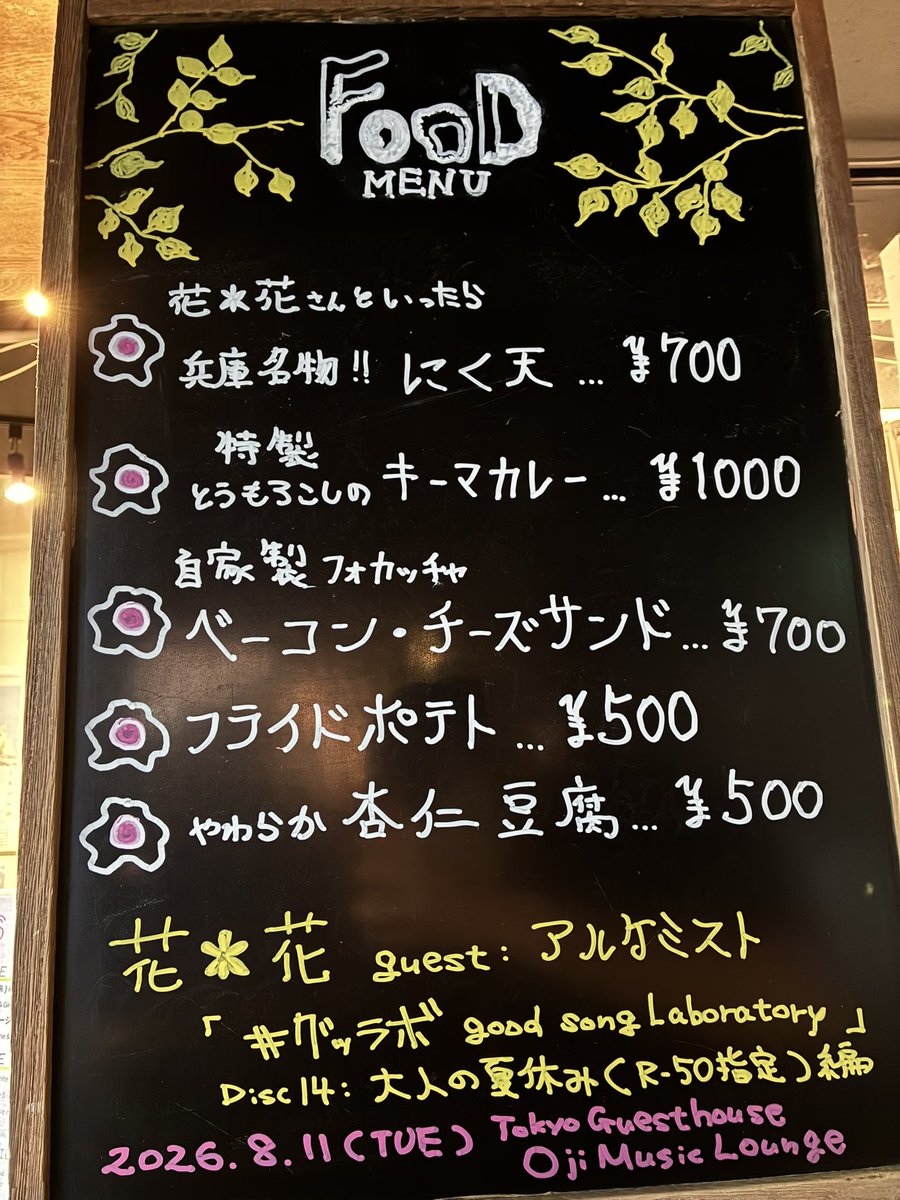 FOOD
MENU
花＊花さんといったら
兵庫名物!! にく天 … ¥700
特製
とうもろこしの キーマカレー … ¥1000
自家製フォカッチャ
ベーコン・チーズサンド … ¥700
フライドポテト … ¥500
やわらか 杏仁豆腐 … ¥500
花＊花 guest: アルケミスト
「#グッラボ good song Laboratory」
Disc14: 大人の夏休み(R-50指定)編
2026.8.11(TUE) Tokyo Guesthouse
Oji Music Lounge